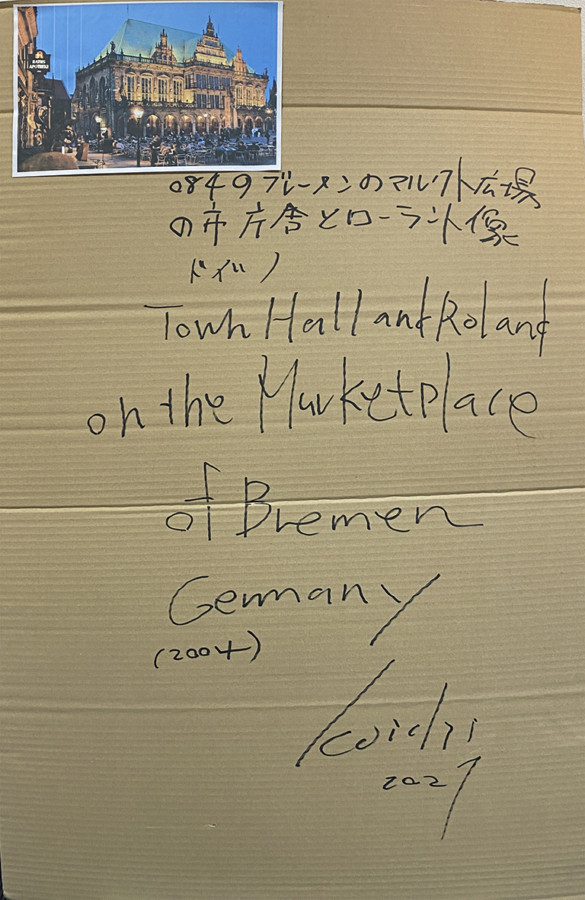 RATHS
APOTHEKE
0849ブレーメンのマルクト広場
の市庁舎とローラント像
ドイツ
Town Hall and Roland
on the Marketplace
of Bremen
Germany
(2004)
Koichi
2021